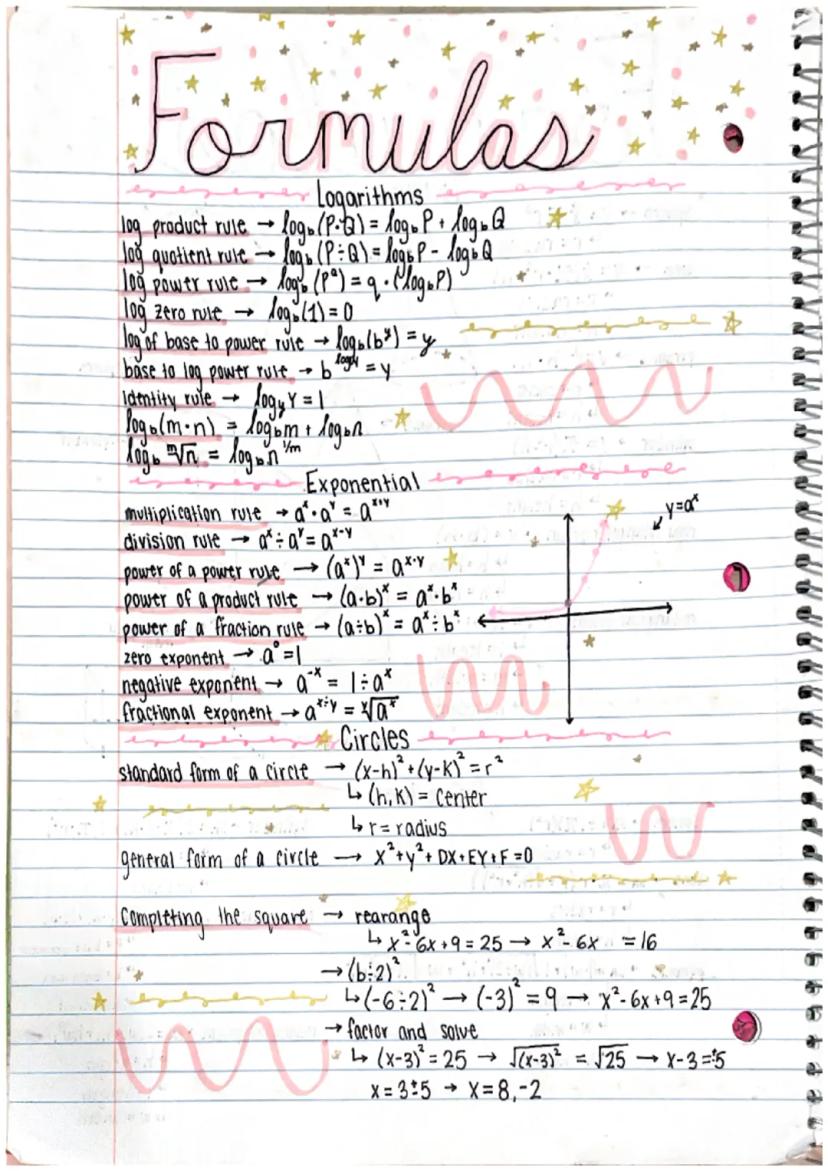 Formulas
Logarithms
log product rule → log_b(P·Q) = log_b P + log_b Q
log quotient rule → log_b(P÷Q) = log_b P - log_b Q
log power rule → log_b(P^q) = q · (log_b P)
log zero rule → log_b(1) = 0
log of base to power rule → log_b(b^y) = y
base to log power rule → b^(log_b y) = y
identity rule → log_y Y = 1
log_b(m·n) = log_b m + log_b n
log_b ᵐ√n = log_b n^(1/m)
Exponential
multiplication rule → a^x · a^y = a^(x+y)
y=a^x
division rule → a^x ÷ a^y = a^(x-y)
power of a power rule → (a^x)^y = a^(x·y)
power of a product rule → (a·b)^x = a^x · b^x
power of a fraction rule → (a÷b)^x = a^x ÷ b^x
zero exponent → a^0 = 1
negative exponent → a^(-x) = 1÷a^x
fractional exponent → a^(x÷y) = ˣ√(a^x)
Circles
standard form of a circle → (x-h)² + (y-k)² = r²
↳ (h,k) = center
↳ r = radius
general form of a circle → x² + y² + DX + EY + F = 0
Completing the square → rearange
↳ x² - 6x + 9 = 25 → x² - 6x = 16
→ (b÷2)²
↳ (-6÷2)² → (-3)² = 9 → x² - 6x + 9 = 25
→ factor and solve
↳ (x-3)² = 25 → √(x-3)² = √25 → x-3 = ±5
x = 3±5 → x = 8, -2